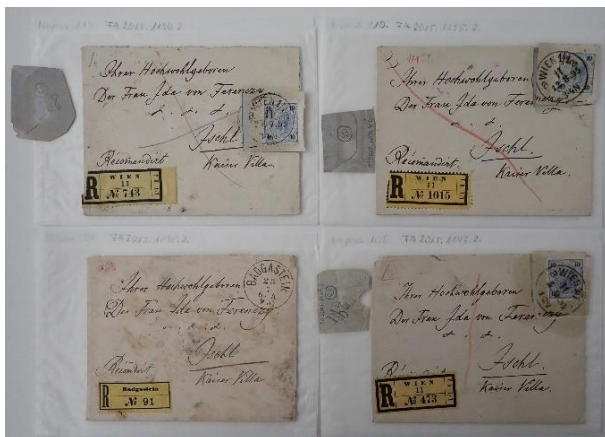 FA 2015. 1190. 2.
Ihrer Hochwohlgeboren
Der Frau Ida von Ferenczy
Ischl
Recomandirt
Kaiser Villa.
R
WIEN
11
№ 743
119. FA 2015. 1195. 2.
Ihrer Hochwohlgeboren
Der Frau Ida von Ferenczy
Ischl.
Recomandirt.
Kaiser Villa.
WIEN
R
WIEN
11
№ 1015
FA 2015.
Ihrer Hochwohlgeboren
Der Frau Ida von Ferenczy
Ischl
Recomandirt
Kaiser Villa.
BADGASTEIN
R
Badgastein
№ 91
FA 2015. 1197. 2.
Ihrer Hochwohlgeboren
Der Frau Ida von Ferenczy
Ischl.
Kaiser Villa.
WIEN
R
WIEN
11
№ 473